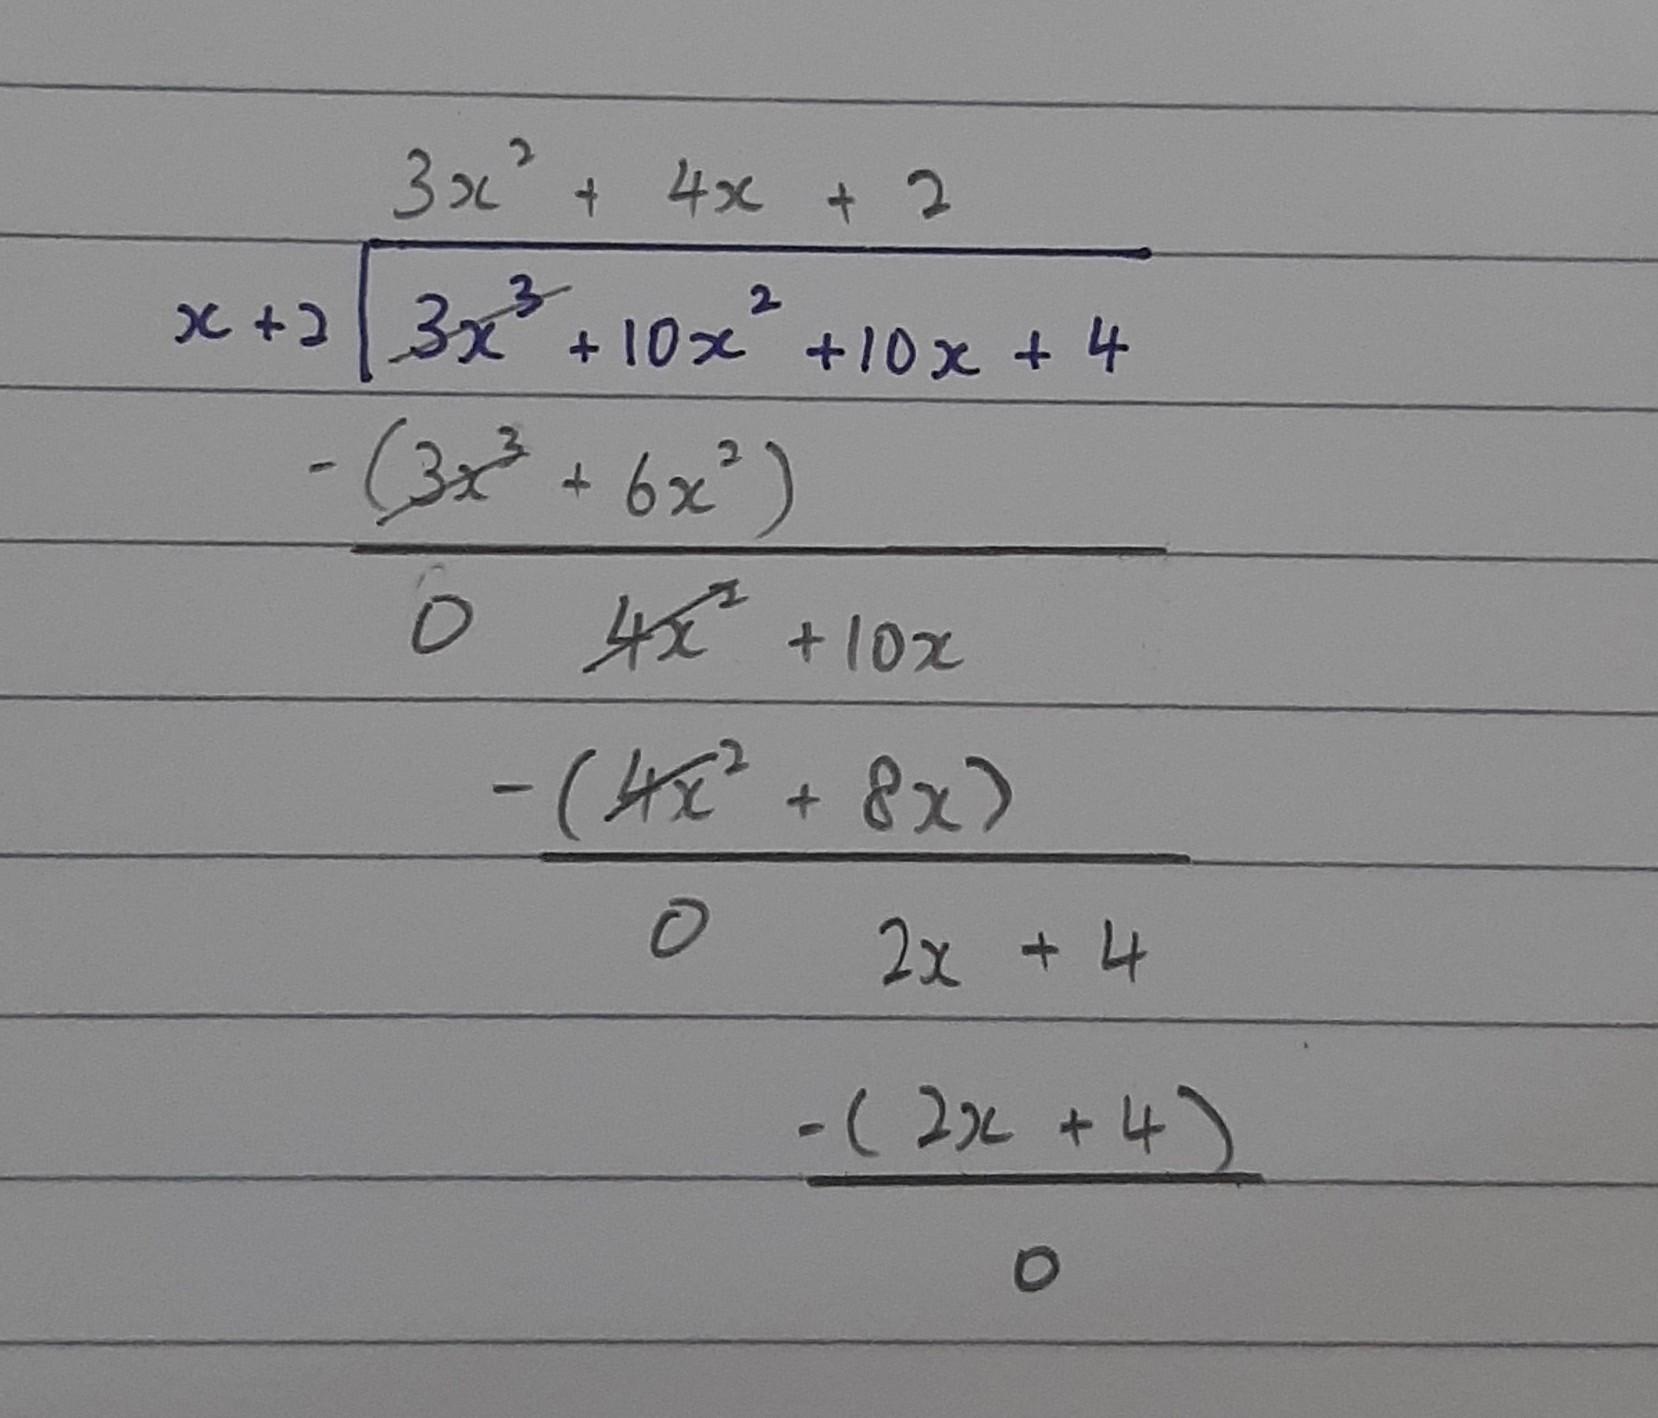 3x² + 4x + 2
x+2 3x³ +10x² +10x + 4
-(3x³ + 6x²)
0 4x² +10x
-(4x² + 8x)
0 2x + 4
-(2x + 4)
0